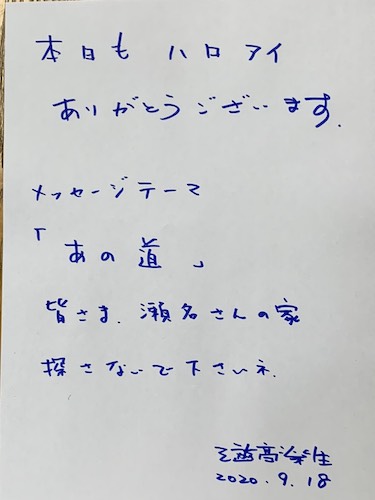 本日も ハロアイ
ありがとうございます.
メッセージテーマ
「あの道」
皆さま、瀬名さんの家
探さないで下さいネ.
2020.9.18